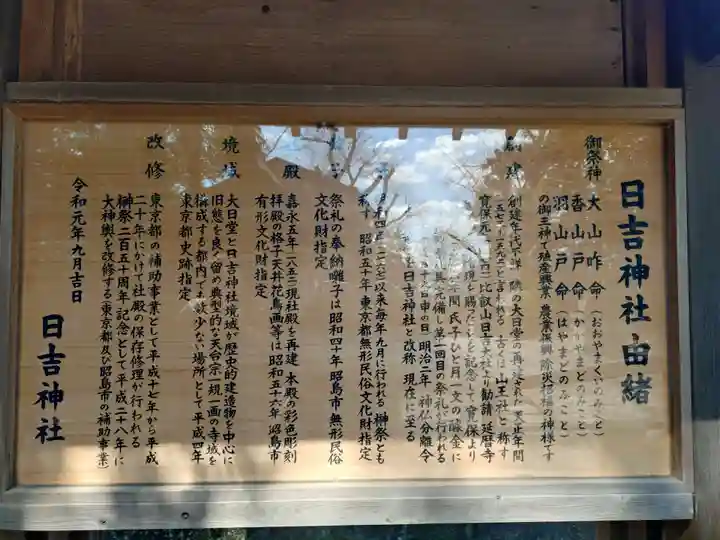 日吉神社由緒
御祭神 大山咋命(おおやまくいのみこと)
香山戸命(かかやまどのみこと)
羽山戸命(はやまどのみこと)
の御王神で殖産興業 農業振興 除災招福の神様です
創建 創建年代不詳 隣の大日堂の再建された天正年間
と言われる 古くは山王社と称す
寛保元年 比叡山日吉大社より勧請 延暦寺
を賜ったことを記念して 寛保より
年間 氏子ひと月一文の賽金に
具を完備し第一回目の祭礼が行われる
申の日 明治二年 神仏分離令
日吉神社と改称 現在に至る
以来毎年九月に行われる 榊祭とも
称す 昭和五十年 東京都無形民俗文化財指定
祭礼の奉納囃子は昭和四十年 昭島市 無形民俗
文化財指定
殿 嘉永五年 一八五二 現社殿を再建 本殿の彩色彫刻
拝殿の格子天井花鳥画等は 昭和五十六年 昭島市
有形文化財指定
境域 大日堂と日吉神社境域が歴史的建造物を中心に
旧態を良く留め典型的な天台宗の規一画の寺域を
構成する都内でも数少ない場所として 平成四年
東京都史跡指定
改修 東京都の補助事業として平成十七年から平成
二十年にかけて社殿の保存修理が行われる
榊祭二百五十周年 記念として 平成二十八年に
大神輿を改修する(東京都及び昭島市の補助事業)
令和元年九月吉日
日吉神社